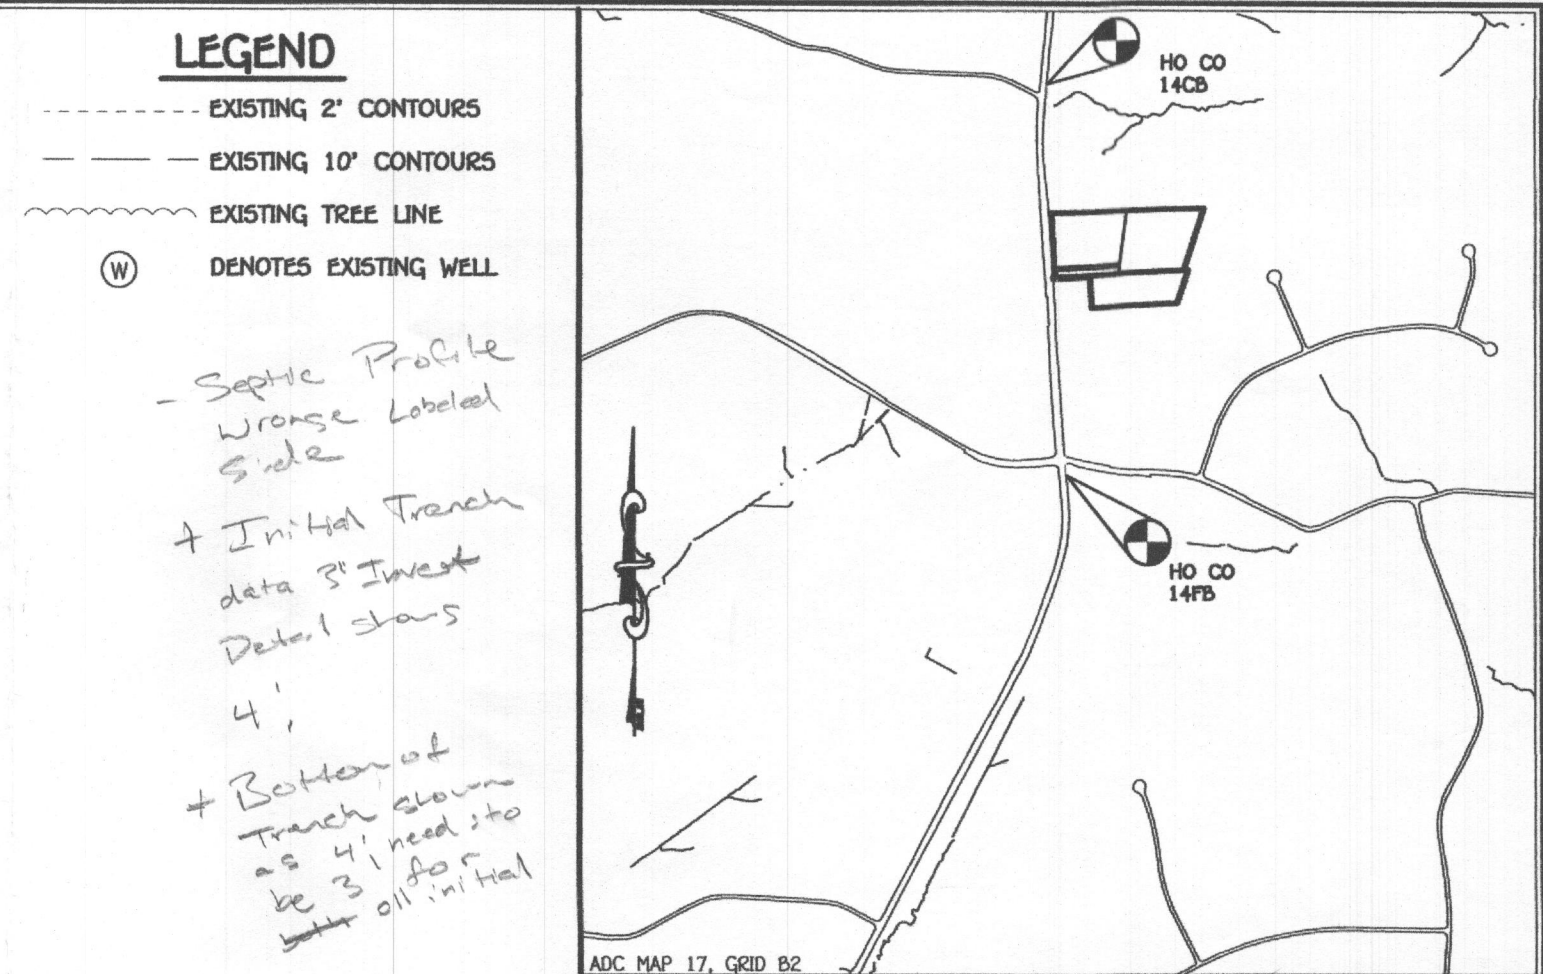 LEGEND
EXISTING 2' CONTOURS
EXISTING 10' CONTOURS
EXISTING TREE LINE
W
DENOTES EXISTING WELL
- Septic Profile
wronge Labeled
side
+ Initial Trench
data 3" Invert
Detail shows
4'
+ Bottom of
Trench shown
as 4', needs to
be 3' for
all initial
HO CO
14CB
HO CO
14FB
ADC MAP 17, GRID B2